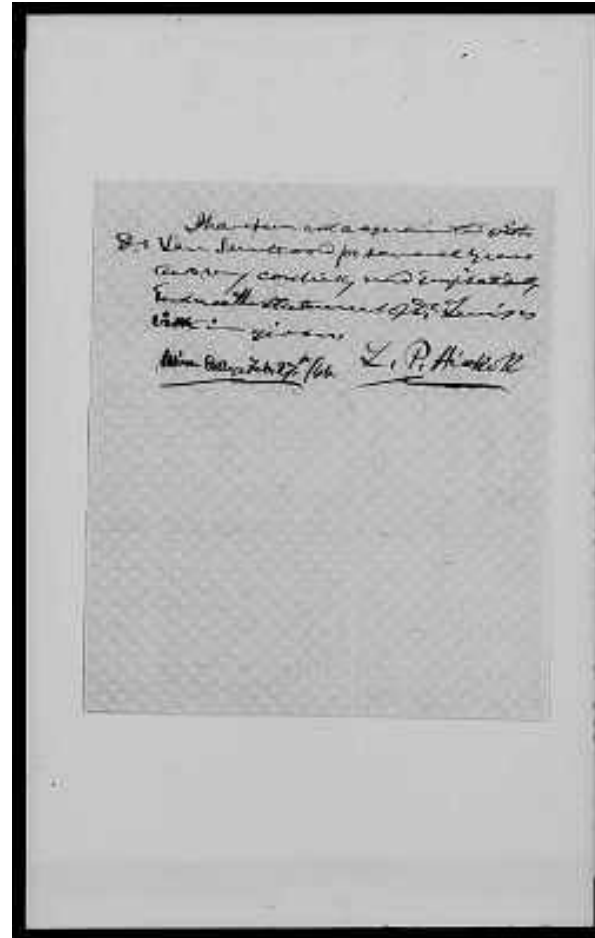 I have been well acquainted with
Dr Van Santvoord for several years
and very cordially and implicitly
Endorse the statement of Dr. Lewis as
within given
Union College Feb. 27th/66 L. P. Hickok